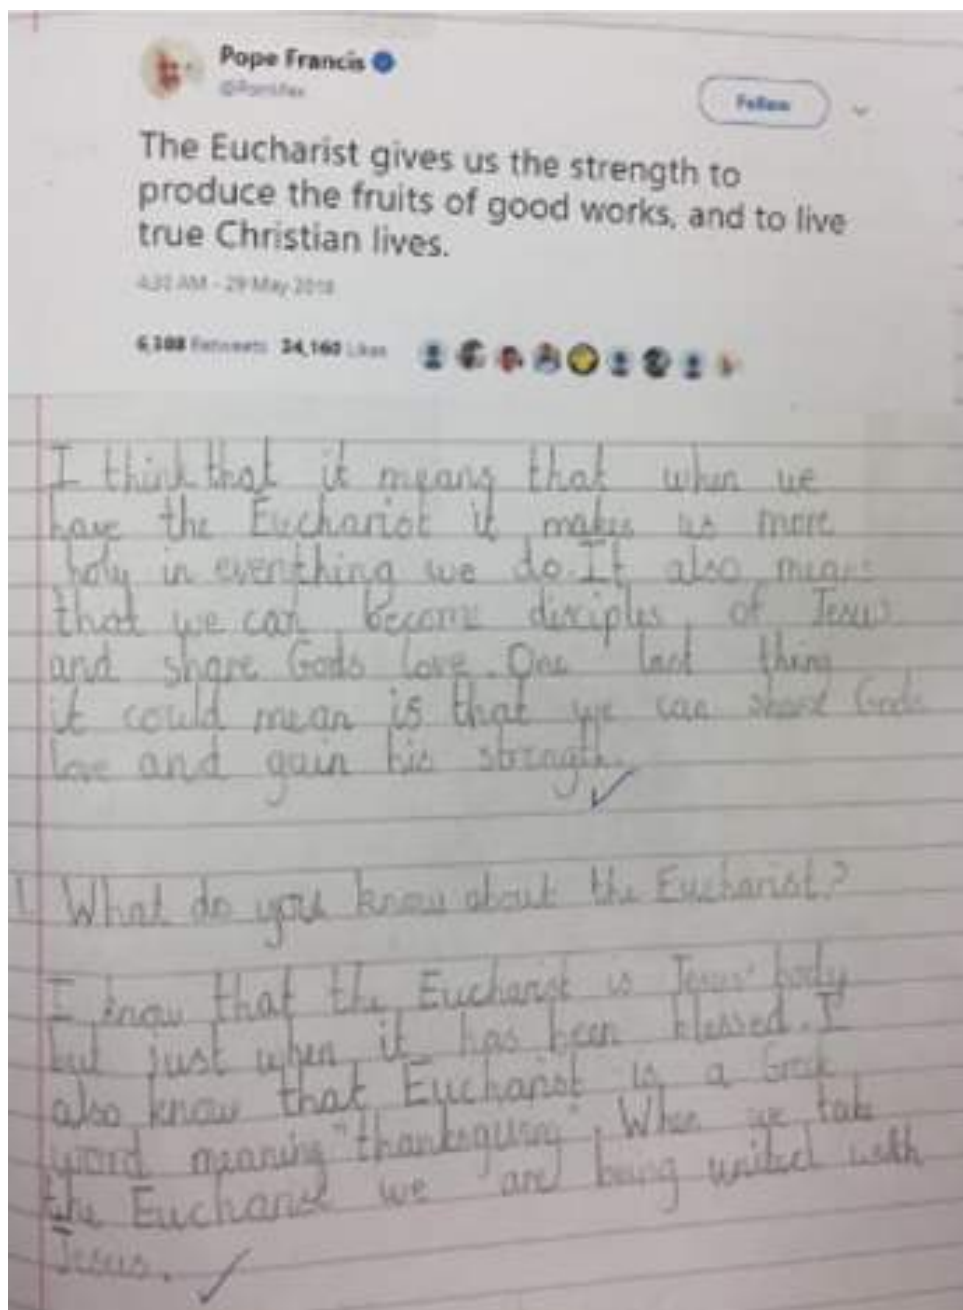 Pope Francis
@Pontifex
Follow
The Eucharist gives us the strength to
produce the fruits of good works, and to live
true Christian lives.
4:30 AM - 29 May 2018
Retweets Likes
I think that it means that when we
have the Eucharist it makes us more
holy in everything we do. It also means
that we can become disciples of Jesus
and share Gods love. One last thing
it could mean is that we can share Gods
love and gain his strength.
1. What do you know about the Eucharist?
I know that the Eucharist is Jesus' body
but just when it has been blessed. I
also know that Eucharist is a Greek
word meaning "thanksgiving". When we take
the Eucharist we are being united with
Jesus.